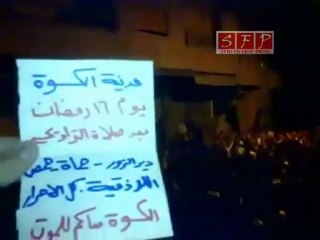 SFP
SYRIAN FREE PRESS
مدينة الكسوة
يوم ١٦ رمضان
بعد صلاة التراويح
ديرالزور - حماة حمص
اللاذقية. كل الأحرار
الكسوة معاكم للموت